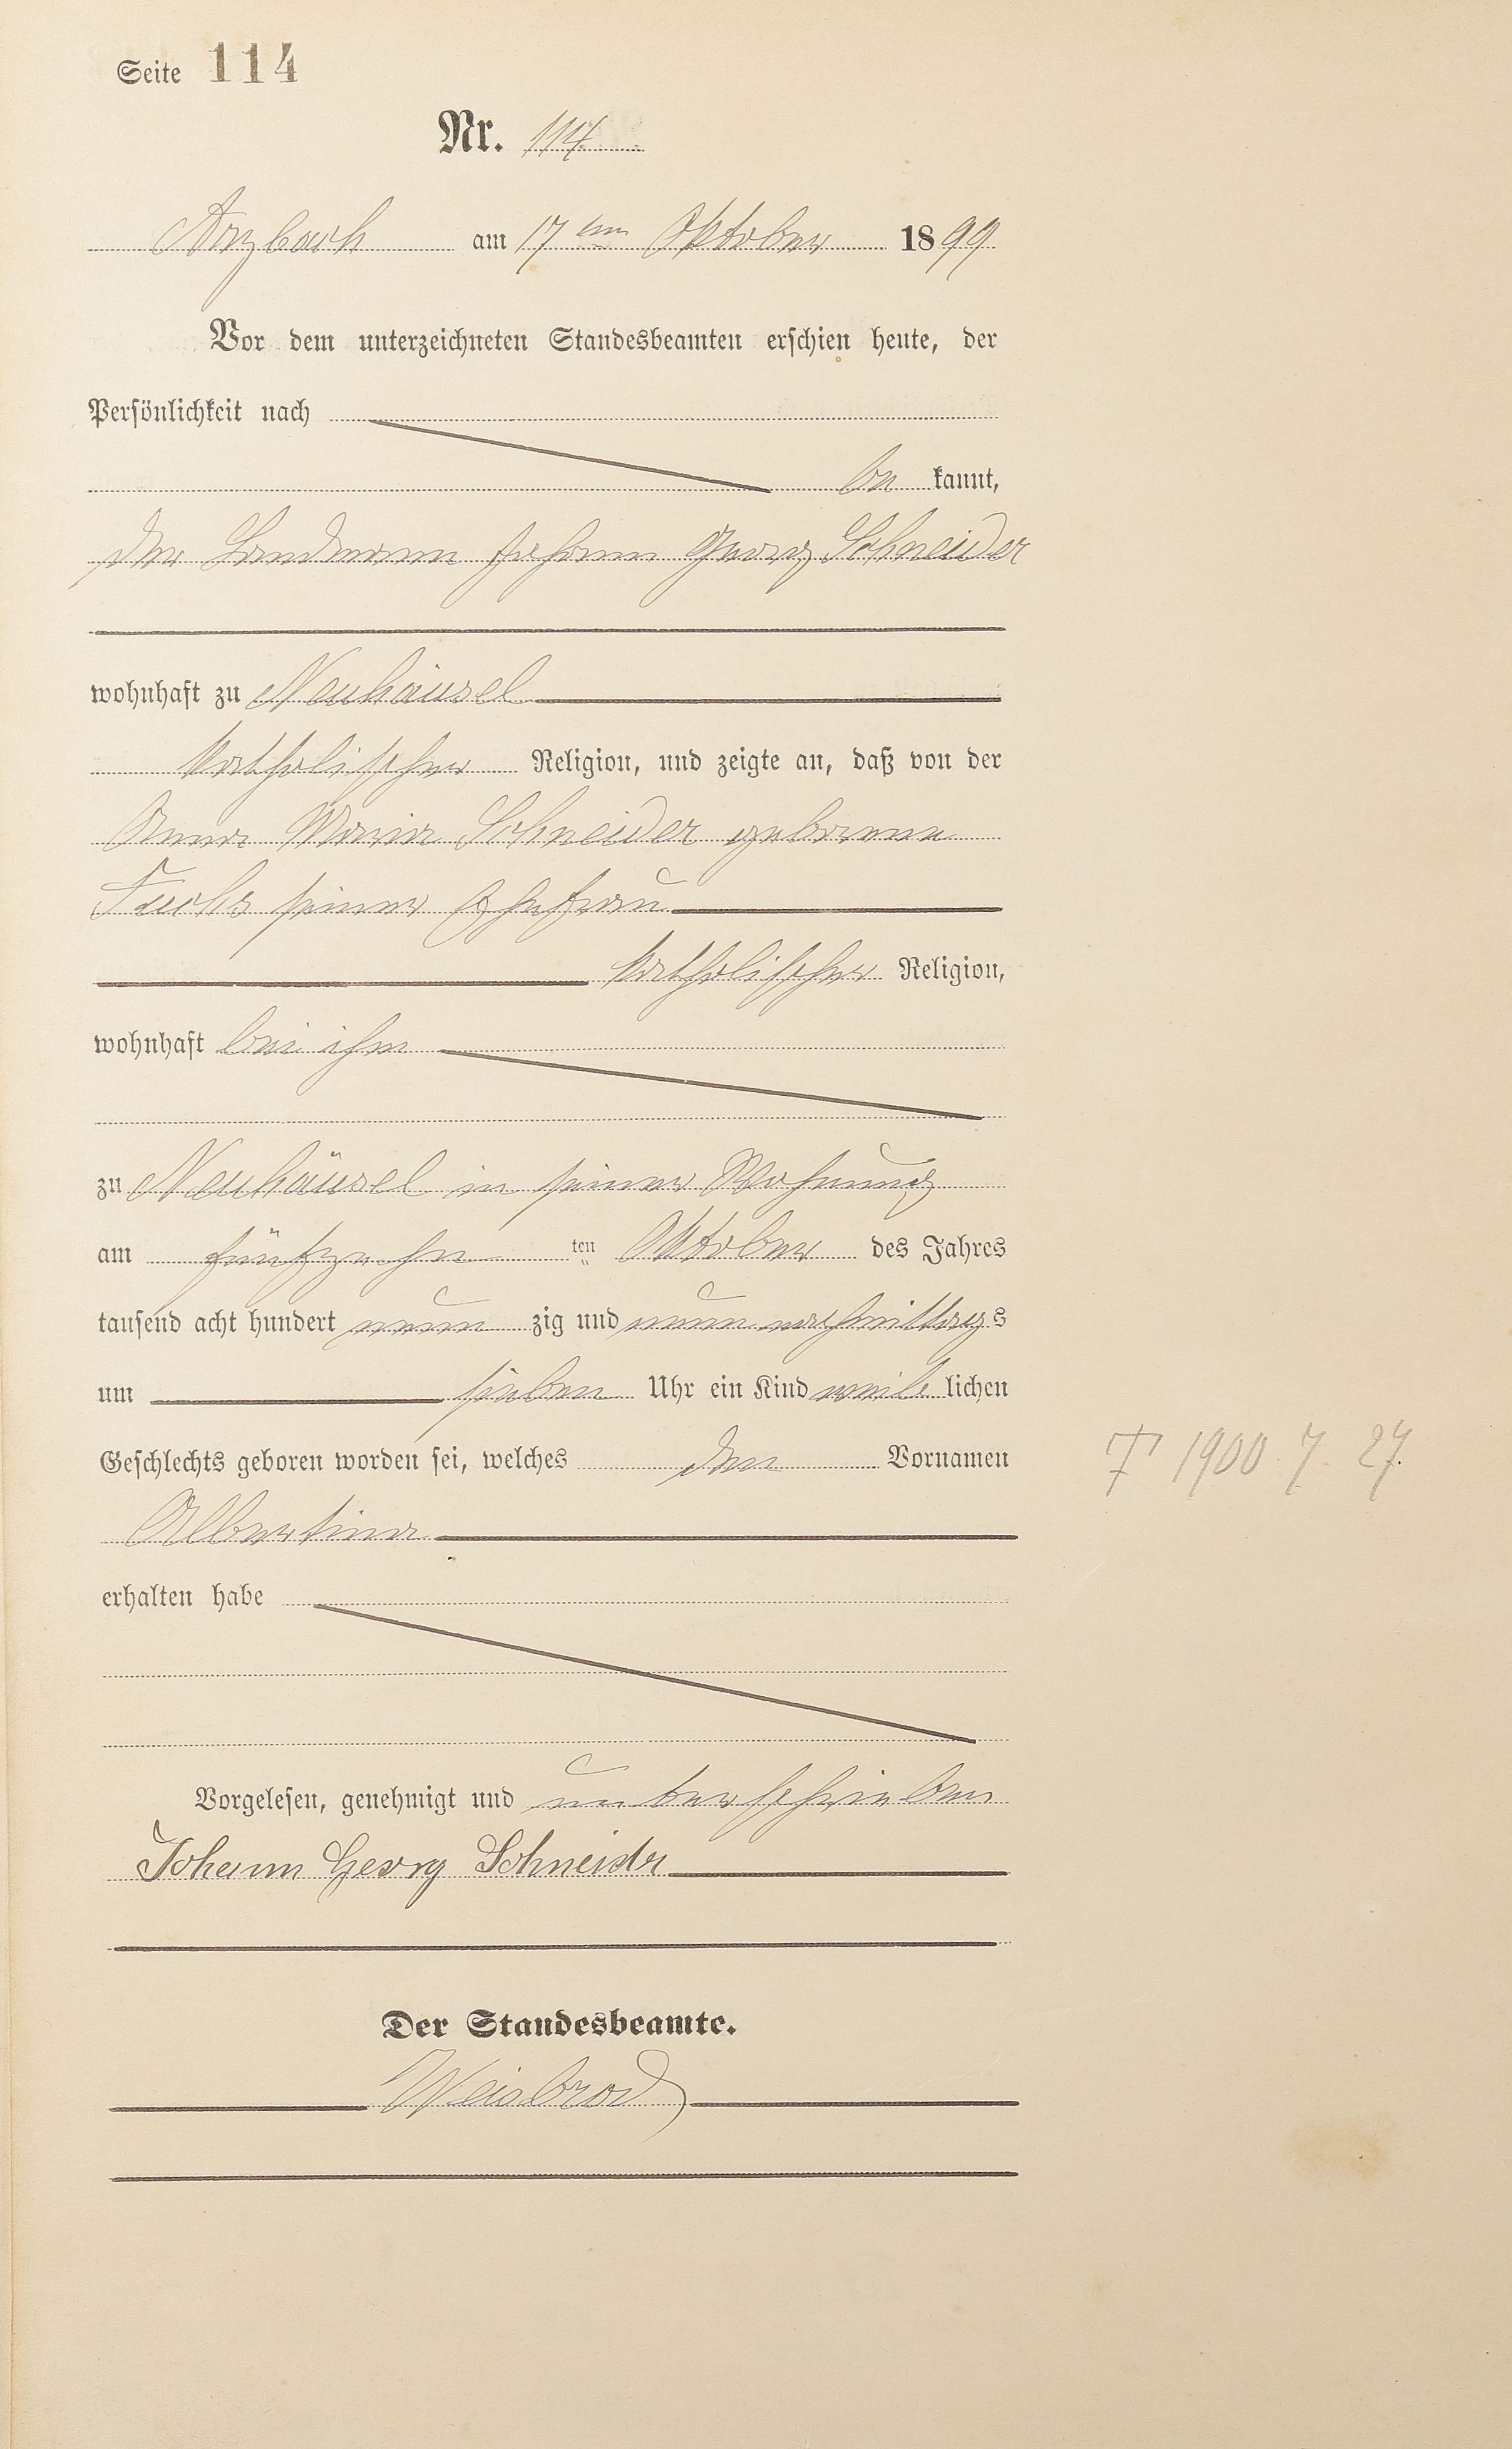 Seite 114
Nr. 114
Arzbach am 17ten Oktober 1899
Vor dem unterzeichneten Standesbeamten erschien heute, der
Persönlichkeit nach
be kannt,
der Landmann Johann Georg Schneider
wohnhaft zu Neuhäusel
katholischer Religion, und zeigte an, daß von der
Anna Maria Schneider geborene
Fuchs seiner Ehefrau
katholischer Religion,
wohnhaft bei ihm
zu Neuhäusel in seiner Wohnung
am fünfzehn ten Oktober des Jahres
tausend acht hundert neun zig und neun nachmittags
um sieben Uhr ein Kind weib lichen
Geschlechts geboren worden sei, welches den Vornamen
† 1900. 7. 27.
Albertina
erhalten habe
Vorgelesen, genehmigt und unterschrieben
Johann Georg Schneider
Der Standesbeamte.
Weisbrod